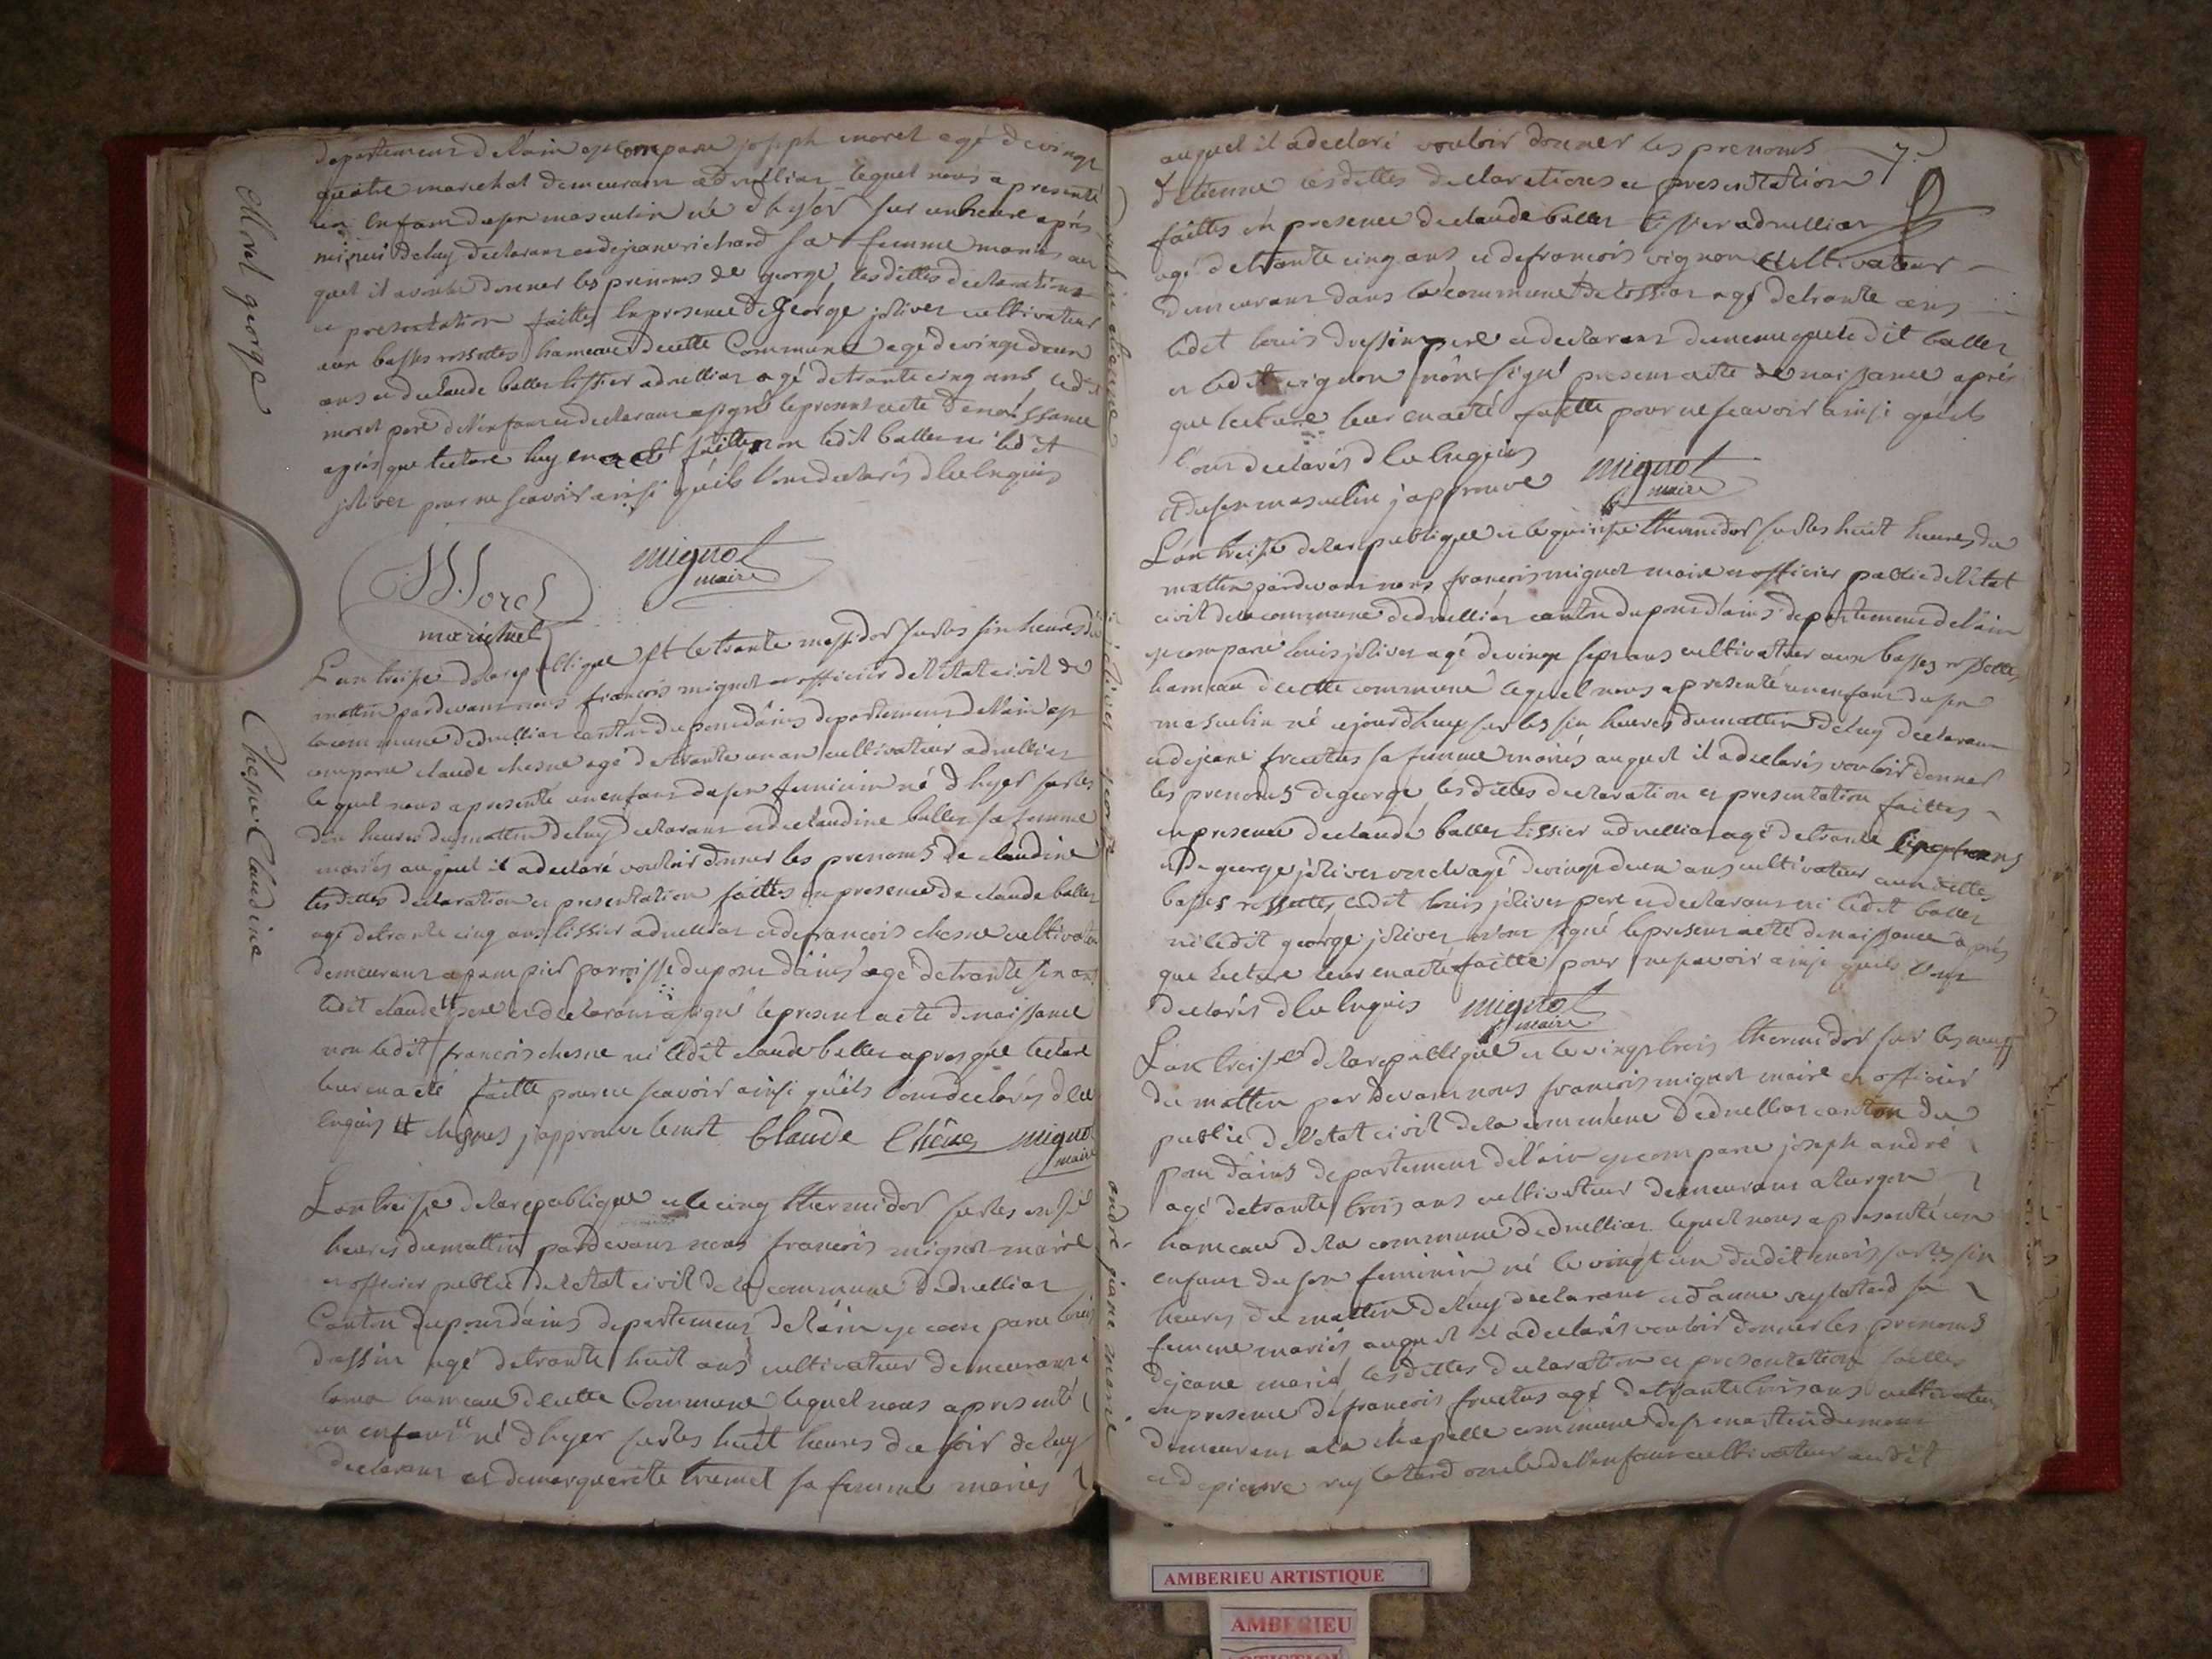 Morel george
departement de l'ain est comparu joseph morel agé de vingt
quatre marichal demeurant a druillias lequel nous a presenté
un enfant du sex masculin né d'hyer sur une heure après
minuit de luy declarant et de jeane richard sa femme mariés au
quel il a voulu donner les prenoms de george, les dittes declarations
et presentation faittes en presence de george jolivet cultivateur
aux basses rossettes hameau de cette Commune agé de vingt deux
ans et de claude ballet tissier a druillias agé de trante cinq ans ledit
morel pere de l'enfant et declarant a signé le present acte de naissance
après que lecture luy en a eté faitte non ledit ballet ni ledit
jolivet pour ne scavoir ainsi qu'ils l'ont declarés de ce enquis
Morel
marichal
mignot
maire
Chesne Claudine
L'an treise de la republique et le trante messidor sur les six heures du
mattin pardevant nous francois mignot et officier de l'état civil de
la commune de druillias canton du pont d'ains departement de l'ain est
comparu claude chesne agé de trante un an cultivateur a druillias
le quel nous a presenté un enfant du sex feminin né d'hyer sur les
dix heures du mattin de luy declarant et de claudine ballet sa femme
mariés auquel il a declaré vouloir donner les prenoms de claudine
les dittes declaration et presentation faittes en presence de claude ballet
agé de trante cinq ans tissier a druillias et de francois chesne cultivateur
demeurant a pampier parroisse du pont d'ains agé de trante six ans
ledit claude # pere et declarant a signé le present acte de naissance
non ledit francois chesne ni ledit claude ballet apres que lecture
leur en a eté faitte pour ne scavoir ainsi qu'ils l'ont declarés de ce
enquis # chesnes j'approuve le mot Claude Chêne mignot
maire
jolivet george
L'an treise de la republique et le cinq thermidor sur les onse
heures du mattin pardevant nous francois mignot maire
et officier public de l'etat civil de la commune de druillias
Canton du pont d'ains departement de l'ain est comparu louis
dressin agé de trante huit ans cultivateur demeurant a
hameau de cette Commune lequel nous a presenté
un enfant né d'hyer sur les huit heures du soir de luy
declarant et de marguerite tremel sa femme mariés
andré jeane marie
7.
auquel il a declaré vouloir donner les prenoms
d'etienne les dittes declarations et presentation
faittes en presence de claude ballet tissier a druillias
agé de trante cinq ans et de francois vignon cultivateur
demeurant dans la commune de tossiat agé de trante ans
ledit louis dressin pere et declarant de meme que ledit ballet
et ledit vignon n'ont signé present acte de naissance après
que lecture leur en a eté faitte pour ne scavoir ainsi qu'ils
l'ont declarés de ce enquis
# du sex masculin j'approuve mignot
maire
L'an treise de la republique et le quinse thermidor sur les huit heures du
mattin pardevant nous francois mignot maire et officier public de l'état
civil de la commune de druillias canton du pont d'ains departement de l'ain
est comparu louis jolivet agé de vingt sept ans cultivateur aux basses rossettes
hameau de cette commune lequel nous a presenté un enfant du sex
masculin né cejourd'huy sur les six heures du mattin de luy declarant
et de jeane fructus sa femme mariés auquel il a declarés vouloir donner
les prenoms de george les dittes declaration et presentation faittes
en presence de claude ballet tissier a druillias agé de trante cinq ans
et de george jolivet oncle agé de vingt deux ans cultivateur aux dittes
basses rossettes ledit louis jolivet pere et declarant ni ledit ballet
ni ledit george jolivet n'ont signé le present acte de naissance après
que lecture leur en a eté faitte pour ne scavoir ainsi qu'ils l'ont
declarés de ce enquis mignot
maire
L'an treise de la republique et le vingt trois thermidor sur les neuf
du mattin par devant nous francois mignot maire et officier
public de l'etat civil de la commune de druillias canton du
pont d'ains departement de l'ain est comparu joseph andré
agé de trante trois ans cultivateur demeurant a turgon
hameau de la commune de druillias lequel nous a presenté un
enfant du sex feminin né le vingt un dudit mois sur les six
heures du mattin de luy declarant et d'anne reylatard sa
femme mariés auquel il a declarés vouloir donner les prenoms
de jeane marie les dittes declaration et presentation faittes
en presence de francois fructus agé de trante trois ans cultivateur
demeurant a la chapelle commune de st martin du mont
et de pierre reylatard oncle de l'enfant cultivateur audit
AMBERIEU ARTISTIQUE
AMBERIEU
ARTISTIQUE